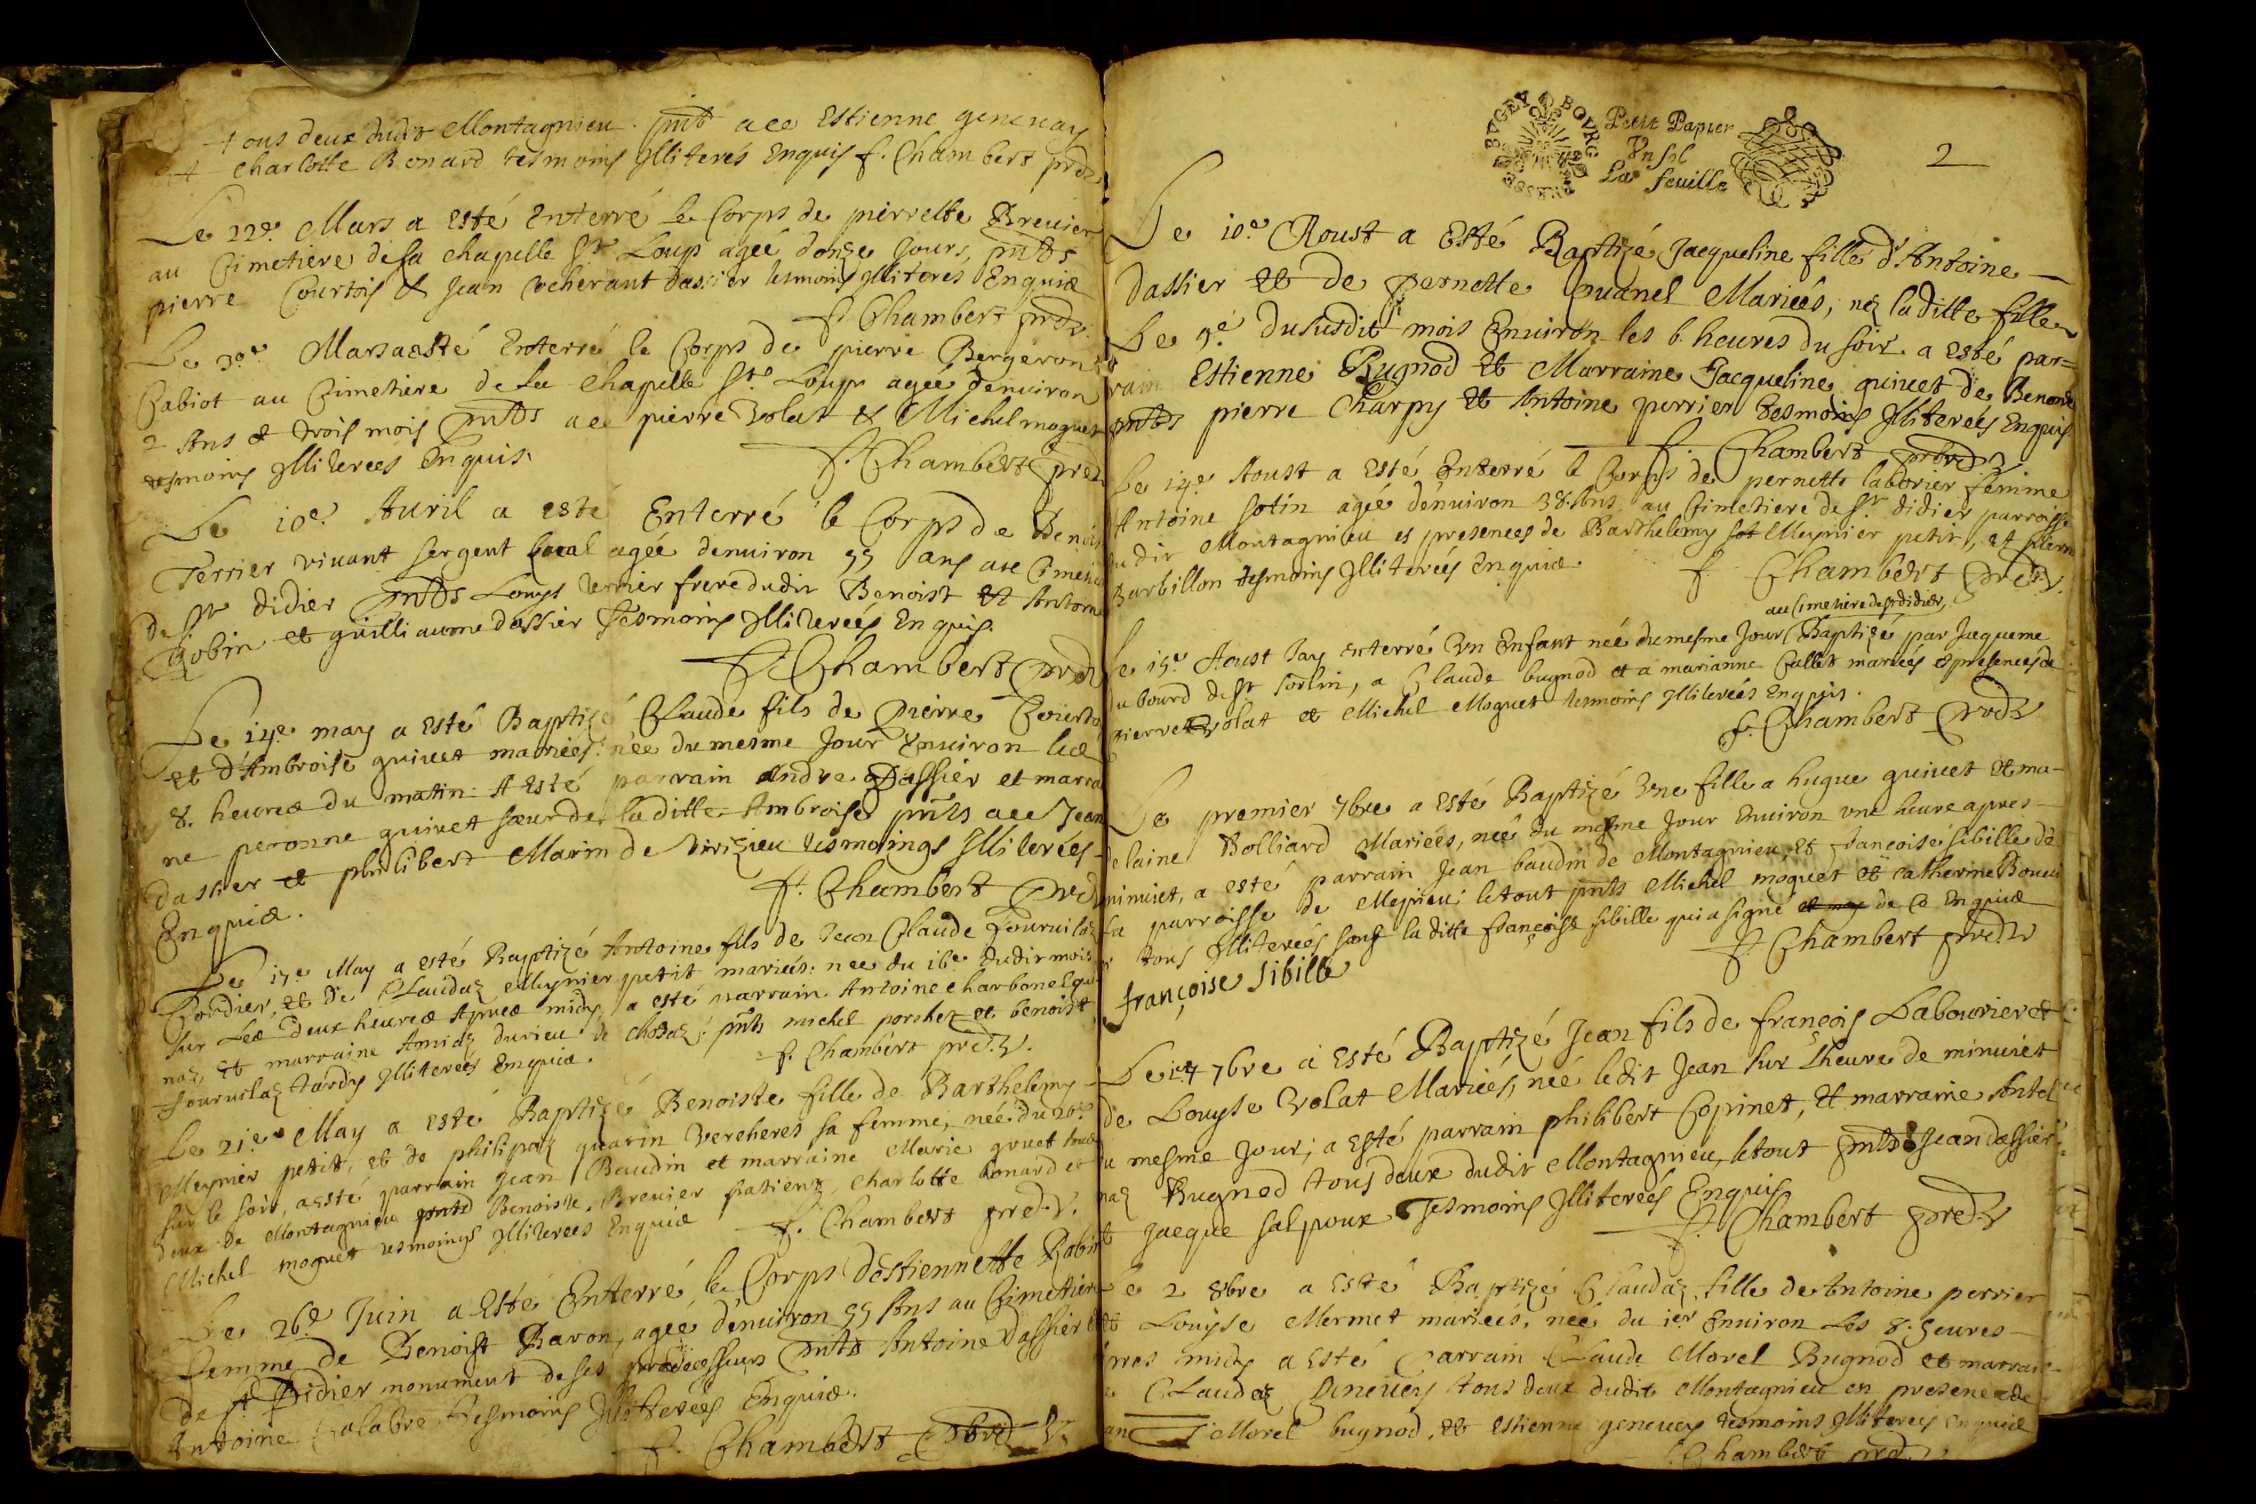 tous deux dudit Montagnieu. pnts ace Estienne geneuay
& charlotte Bonard tesmoins Illiterés Enquis f. Chambert
Le 22e Mars a Esté Enterré le Corps de pierrette Breuier
au Cimetiere de la chapelle St Loup ageé donze Jours, pnts
pierre Courtois & Jean dassier tesmoins Illiterés Enquis
f. Chambert
Le 30e Mars a esté Enterré le Corps de pierre Bergeron
Cabiot au Cimetiere de la chapelle St Loup ageé denuiron
2 Ans & trois mois pnts ace pierre Volat & Michel moguet
tesmoins Illitereés Enquis.
f. Chambert
Le 10e Auril a esté Enterré le Corps de Benoist
Terrier viuant sergent Local ageé denuiron 55 ans au Cimetiere
de St didier pnts Louys terrier frere dudit Benoist et Antoine
Robin et guilliaume dassier Tesmoins Illitereés Enquis
f. Chambert
Le 14e may a Esté Baptizé Claude fils de Pierre
et d'Ambroise quinet marieés: née du mesme Jour Enuiron les
8. heures du matin. A Esté parrain Andre Dassier et marrai
ne peronne quinet sœur de la ditte Ambroise pnts ace Jean
dassier et philibert Marin de tesmoings Illitereés
Enquis.
f. Chambert
Le 17e May a esté Baptizé Antoine fils de Jean Claude
Cordier, et de Claudaz Meynier petit marieés: nee du 16e dudit mois
sur Les deux heures Apres midy, a esté parrain Antoine charbonel
naz, et marraine Amiaz durieu de pnts michel et benoist
tardy Illitereés Enquis.
f. Chambert
Le 21e May a esté Baptizé Benoiste fille de Barthelemy
Meynier petit, et de philipaz guarin Vercheres sa femme, née du 20e
sur le soir, a esté parrain Jean Baudin et marraine Marie gruet tous
deux de Montagnieu pnts Benoiste Breuier charlotte bonard et
Michel moguet tesmoings Illitereés Enquis
f. Chambert
Le 26e Juin a Esté Enterré le Corps destiennette Robin
femme de Benoist Baron, ageé denuiron 55 Ans au Cimetiere
de St Didier monument de ses predecesseurs pnts Antoine Dassier &
Antoine Calabre Tesmoins Illitereés Enquis.
f. Chambert
BVGEY BOVRG BRESSE
Petit Papier
Vn sol
La feuille
2
Le 10e Aoust a Esté Baptizé Jacqueline fille d'Antoine
Dassier et de Pernette Marieés, neé la ditte fille
Le 9e dususdit mois Enuiron les 6. heures du soir. a esté par=
rain Estienne Bugnod et Marraine Jacqueline quinet de Benone
pnts pierre Charpy et Antoine perrier tesmoins Illitereés Enquis
f. Chambert
Le 14e Aoust a Esté Enterré le Corps de pernette laborier femme
Antoine sotin ageé denuiron 38 Ans au Cimetiere de St didier parroisse
dudit Montagnieu es presences de Barthelemy Meynier petit, et pierre
Barbillon tesmoins Illitereés Enquis
f. Chambert
au Cimetiere de St didier,
Le 15e Aoust Jay enterré Vn Enfant née du mesme Jour Baptizé par Jaqueme
du bourd de St sorlin, a Claude bugnod et a marianne Callet marieés es presences de
pierre Volat et Michel Moguet tesmoins Illitereés Enquis.
f. Chambert
Le premier 7bre a Esté Baptizé Vne fille a hugue quinet et ma-
delaine Volliard Marieés, neé du mesme Jour Enuiron vne heure apres
minuiet, a esté parrain Jean baudin de Montagnieu, et francoise sibille de
La parroisse de Mepieu; le tout pnts Michel moguet et catherine
tous Illitereés sauf la ditte françoise sibille qui a signé de ce Enquis
f. Chambert
françoise sibille
Le 14 7bre a Esté Baptizé Jean fils de françois Labourier et
de Louyse Volat Marieés, neé ledit Jean sur Lheure de minuiet
du mesme Jour; a Esté parrain philibert Copinet, et marraine Anto
naz Bugnod tous deux dudit Montagnieu, le tout pnts Jean dassier
et Jaeque salpoux Tesmoins Illitereés Enquis
f. Chambert
Le 2 8bre a Esté Baptizé Claudaz fille de Antoine perrier
et Louyse Mermet marieés, neé du 1er Enuiron Les 8. heures
apres midy a esté Parrain Claude Morel Bugnod et marrai-
ne Claudaz Geneuey tous deux dudit Montagnieu en presence de
Morel bugnod, et Estienne geneuey tesmoins Illitereés Enquis
f. Chambert